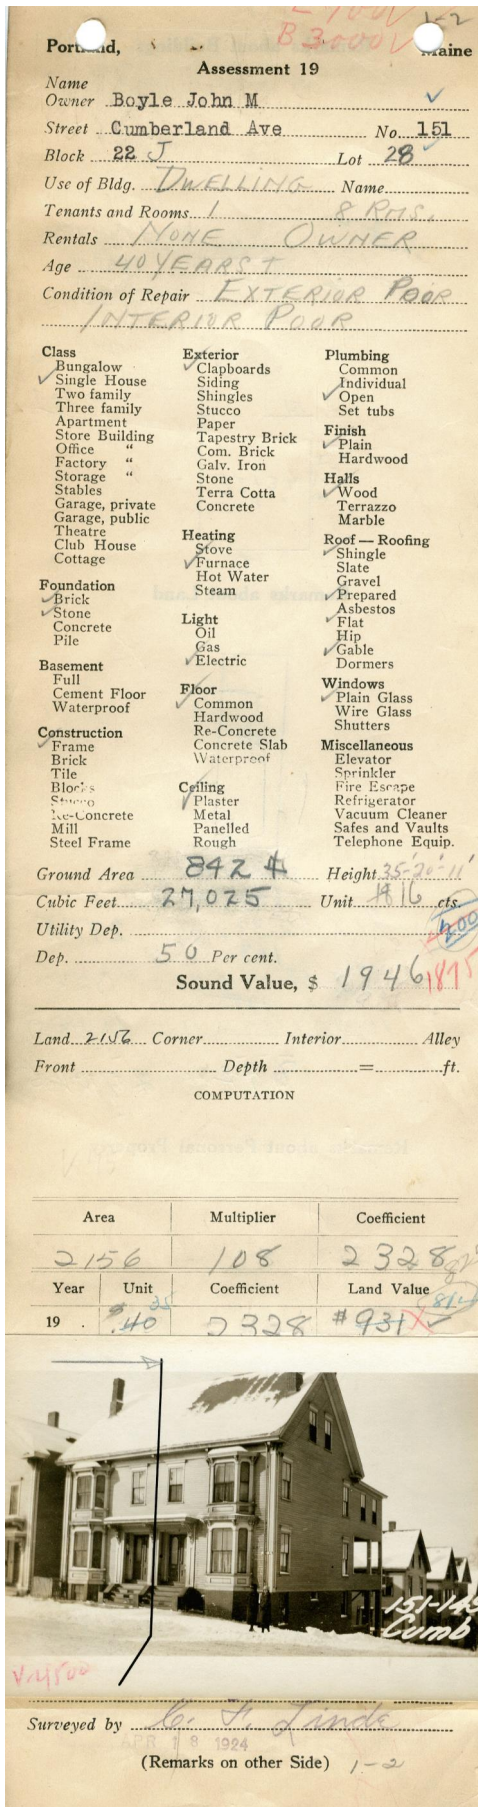 1-2
B 3000
Portland, Maine
Assessment 19
Name
Owner Boyle John M
Street Cumberland Ave No. 151
Block 22 J Lot 28
Use of Bldg. DWELLING Name
Tenants and Rooms 1 8 RMS.
Rentals NONE OWNER
Age 40 YEARS +
Condition of Repair EXTERIOR POOR
INTERIOR POOR
Class
Bungalow
✓ Single House
Two family
Three family
Apartment
Store Building
Office "
Factory "
Storage "
Stables
Garage, private
Garage, public
Theatre
Club House
Cottage
Foundation
✓ Brick
✓ Stone
Concrete
Pile
Basement
Full
Cement Floor
Waterproof
Construction
✓ Frame
Brick
Tile
Blocks
Stucco
Re-Concrete
Mill
Steel Frame
Exterior
✓ Clapboards
Siding
Shingles
Stucco
Paper
Tapestry Brick
Com. Brick
Galv. Iron
Stone
Terra Cotta
Concrete
Heating
Stove
✓ Furnace
Hot Water
Steam
Light
Oil
Gas
✓ Electric
Floor
✓ Common
Hardwood
Re-Concrete
Concrete Slab
Waterproof
Ceiling
✓ Plaster
Metal
Panelled
Rough
Plumbing
Common
Individual
✓ Open
Set tubs
Finish
✓ Plain
Hardwood
Halls
✓ Wood
Terrazzo
Marble
Roof — Roofing
✓ Shingle
Slate
Gravel
✓ Prepared
Asbestos
✓ Flat
Hip
✓ Gable
Dormers
Windows
✓ Plain Glass
Wire Glass
Shutters
Miscellaneous
Elevator
Sprinkler
Fire Escape
Refrigerator
Vacuum Cleaner
Safes and Vaults
Telephone Equip.
Ground Area 842 Height 35'-20'-11'
Cubic Feet 27,025 Unit 16 cts.
Utility Dep.
Dep. 50 Per cent.
Sound Value, $ 1946 1875
Land 2156 Corner Interior Alley
Front Depth = ft.
COMPUTATION
Area Multiplier Coefficient
2156 108 2328
Year Unit Coefficient Land Value
35 814
19 . $.40 2328 $931
151-149
Cumb
Surveyed by C. F. Linde
APR 18 1924
(Remarks on other Side) 1-2